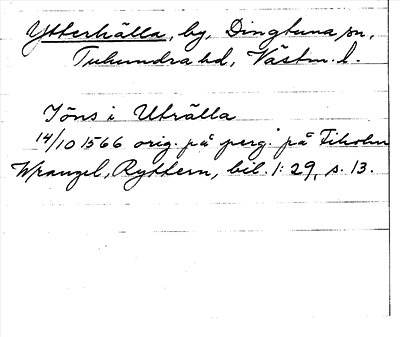 Ytterhälla, by, Dingtuna sn,
Tuhundra hd, Västm. l.
Jöns i Uträlla
14/10 1566 orig. på perg. på Tiholm
Wrangel, Ryttern, bil. 1:29, s. 13.